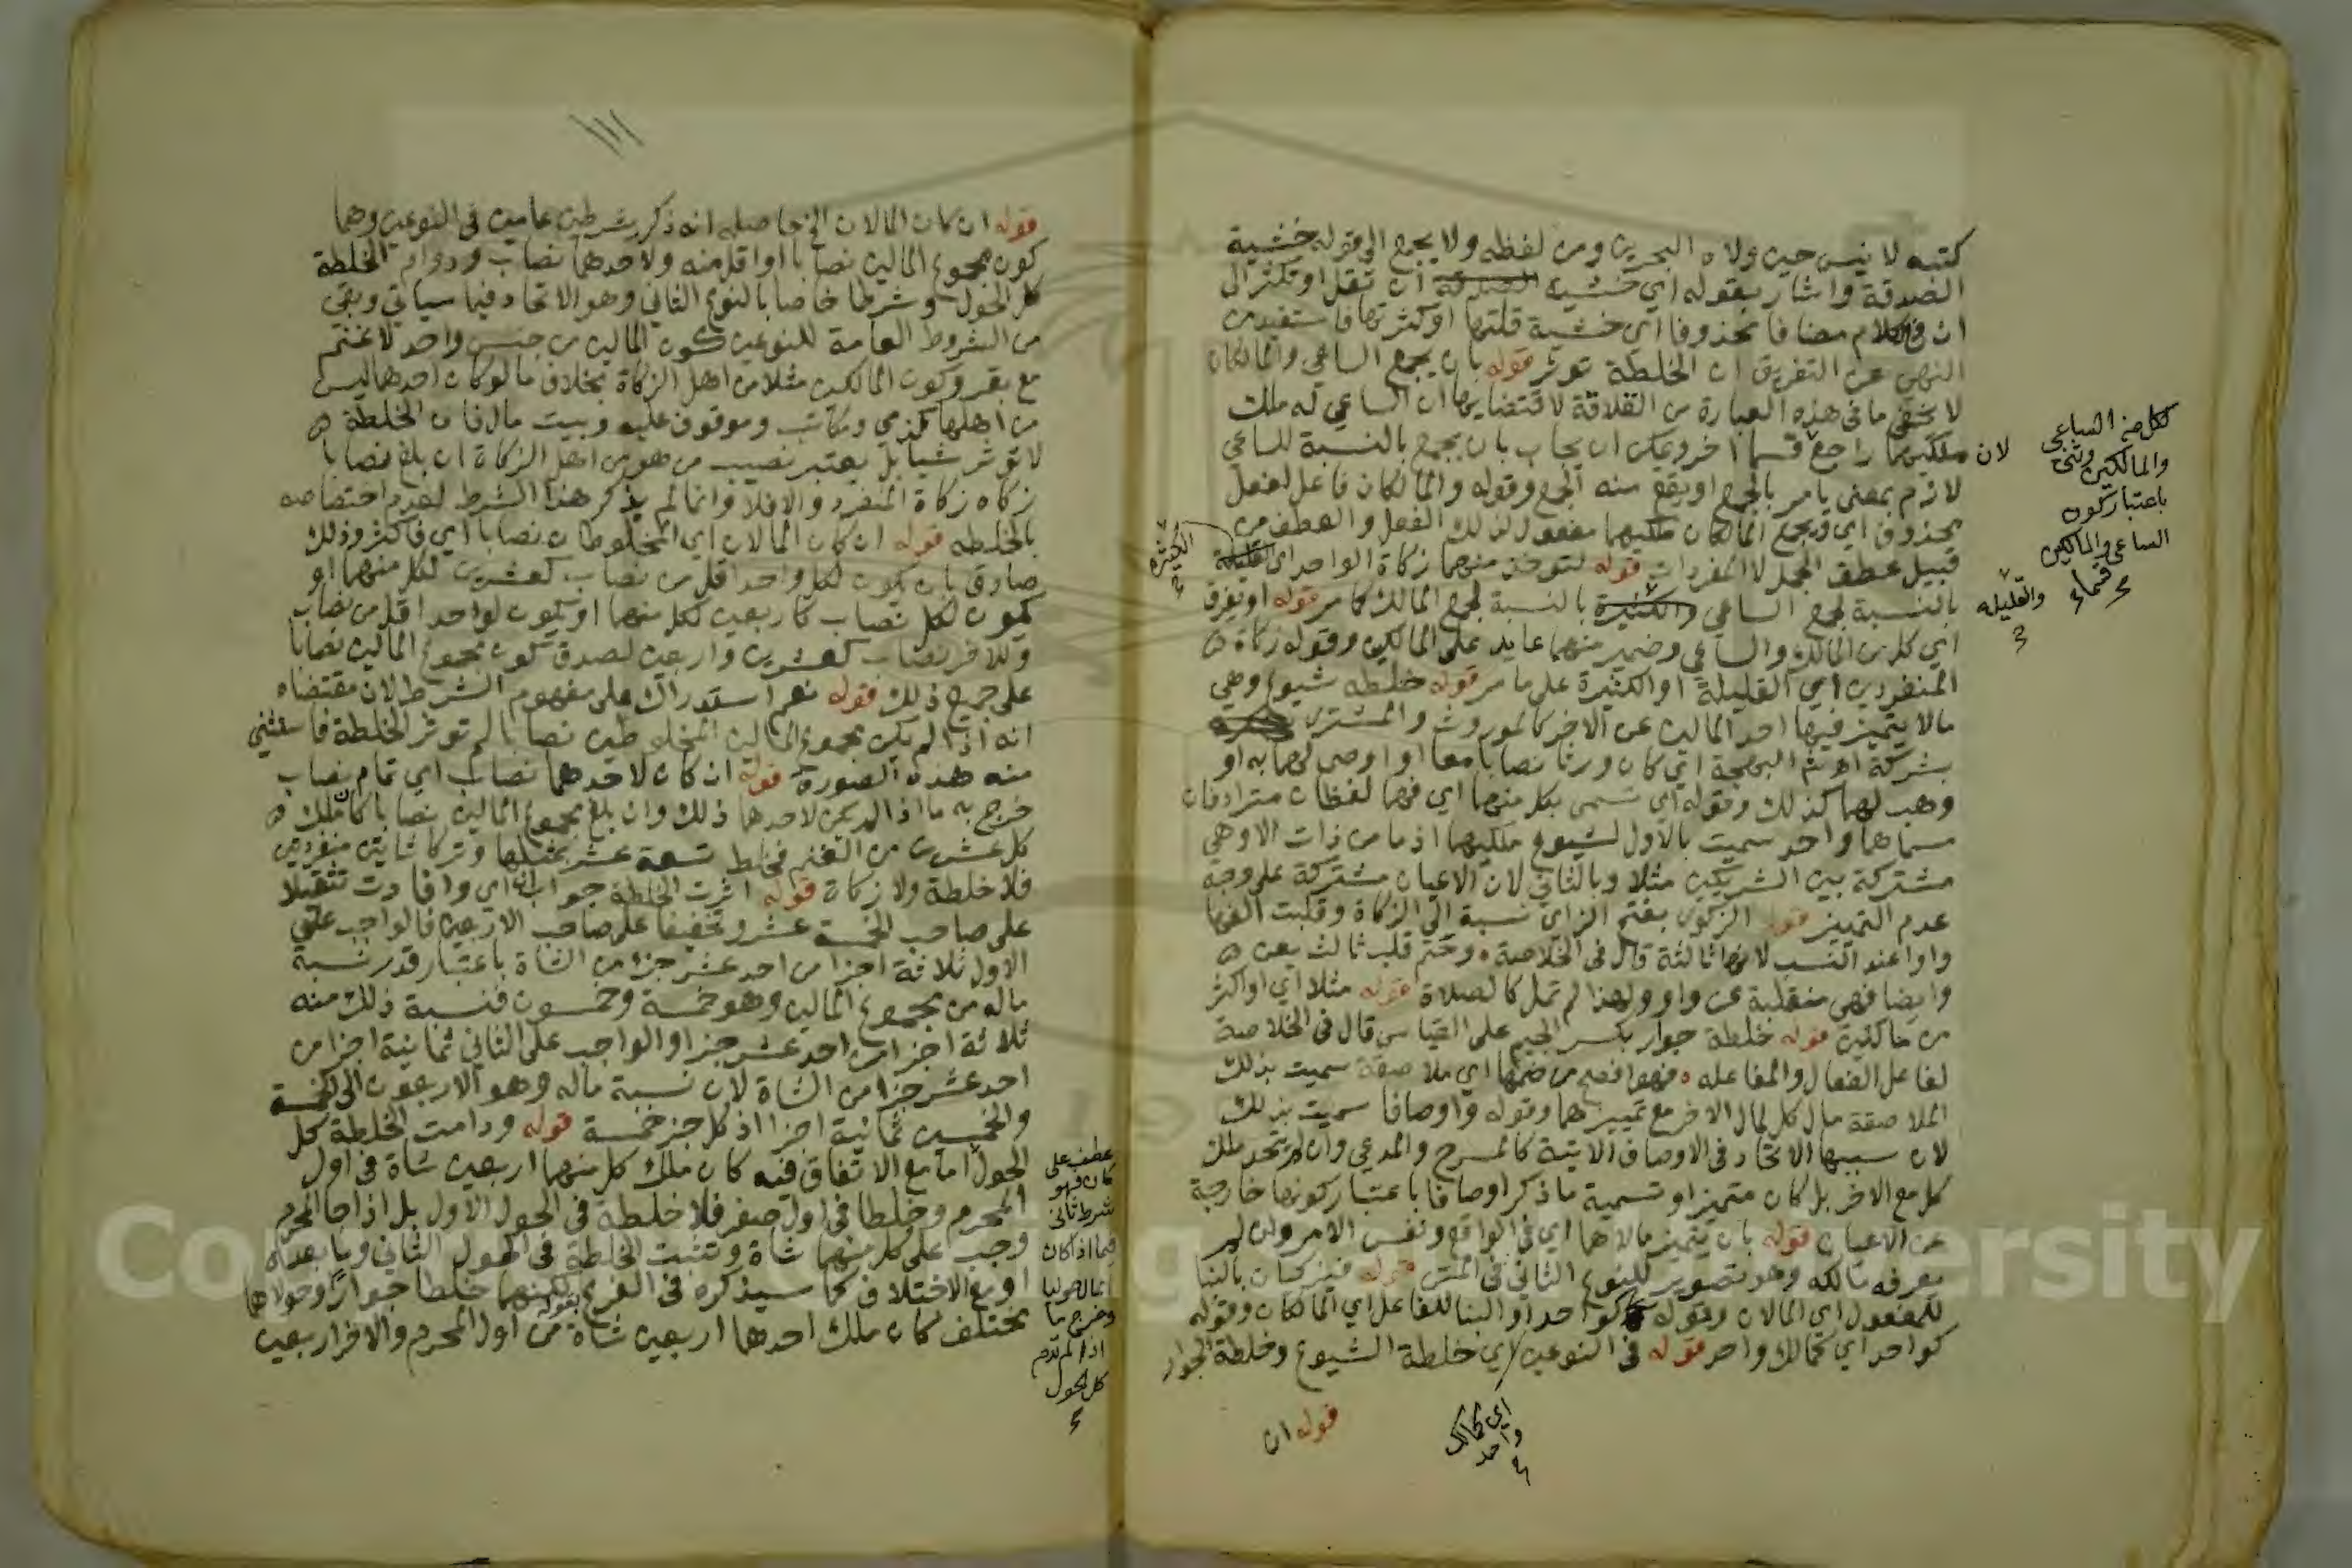 كتبه لا نيس حين ولاه البحرين ومن لفظه ولا يجمع الى قوله خشية
الصدقة واشار بقوله اي خشية الصدقة ان تقل او تكثر الى
ان في الكلام مضافا محذوفا اي خشية قلتها او كثرتها فاستفيد من
النهي عن التفريق ان الخلطة توثر قوله بان يجمع الساعي والمالكان
لا يخفى ما في هذه العبارة من القلاقة لاقتضايها ان الساعي له ملك
لان ملكيهما راجع قسما اخر ويمكن ان يجاب بان يجمع بالنسبة للساعي
لازم بمعنى يامر بالجمع او يقع منه الجمع وقوله والمالكان فاعل لفعل
محذوف اي ويجمع المالكان ملكيهما مفعول لذلك الفعل والعطف من
قبيل عطف الجمل لا المفردات قوله لتوخذ منهما زكاة الواحد اي
بالنسبة لجمع الساعي والكثيرة بالنسبة لجمع المالك كما مر قوله او يفرق
اي كل من المالك والساعي وضمير منهما عايد على المالكين وقوله زكاة
المنفردين اي القليلة او الكثيرة على ما مر قوله خلطة شيوع وهي
مالا يتميز فيها احد المالين عن الاخر كالموروث والمشترى
بشركة اهـ ثم البهجة اي كان ورثا نصابا معا او اوصى لهما به او
وهب لهما كذلك وقوله اي تسمى بكل منهما اي فهما لفظان مترادفان
مسماهما واحد سميت بالاول لشيوع ملكيهما اذ ما من ذات الا وهي
مشتركة بين الشريكين مثلا وبالثاني لان الاعيان مشتركة على وجه
عدم التمييز قوله الزكوي بفتح الزاي نسبة الى الزكاة وقلبت الفها
واوا عند النسب لانها ثالثة قال في الخلاصة وحتم قلب ثالث يعن
وايضا فهي منقلبة عن واو ولهذا لم تمل كالصلاة قوله مثلا اي او اكثر
من ماكثين قوله خلطة جوار بكسر الجيم على القياس قال في الخلاصة
لفاعل الفعال والمفاعله فهو افصح من ضمها اي ملاصقة سميت بذلك
الملاصقة مال كل لمال الاخر مع تمييزهما وقوله واوصافا سميت بذلك
لان سببها الاتحاد في الاوصاف الاتية كالمسرح والمرعى وان لم يتحد ملك
كل مع الاخر بل كان متميزا وتسمية ما ذكر اوصافا باعتبار كونها خارجة
عن الاعيان قوله بان يتميز مالاهما اي في الواقع ونفس الامر وان لم
يعرفه مالكه وهو تصوير للنوع الثاني في المتن قوله فيزكيان بالبنا
للمفعول اي المالان وبقوله كواحد او البنا للفاعل اي المالكان وقوله
كواحد اي كمالك واحد قوله في النوعين اي خلطة الشيوع وخلطة الجوار
قوله ان
اي كمالك
واحد
لكل من الساعي
والمالكين وثنى
باعتبار كون
الساعي والمالكين
قسما
والقليله
الكثيرة
قوله ان كان المالان الخ حاصله انه ذكر شرطين عامين في النوعين وهما
كون مجموع المالين نصابا او اقل منه ولاحدهما نصاب ودوام الخلطة
كل الحول وشرطا خاصا بالنوع الثاني وهو الاتحاد فيما سياتي وبقي
من الشروط العامة للنوعين كون المالين من جنس واحد لا غنم
مع بقر وكون المالكين مثلا من اهل الزكاة بخلاف ما لو كان احدهما ليس
من اهلها كذمي ومكاتب وموقوف عليه وبيت مال فان الخلطة
لا توثر شيا بل يعتبر نصيب من هو من اهل الزكاة ان بلغ نصابا
زكاه زكاة المنفرد والا فلا وانما لم يذكر هذا الشرط لعدم اختصاصه
بالخلطه قوله ان كان المالان اي المخلوطان نصابا اي فاكثر وذلك
صادق بان يكون لكل واحد اقل من نصاب كعشرين لكل منهما او
يكون لكل نصاب كاربعين لكل منهما او يكون لواحد اقل من نصاب
وللاخر نصاب كعشرين واربعين لصدق كون مجموع المالين نصابا
على جميع ذلك قوله نعم استدراك على مفهوم الشرط لان مقتضاه
انه اذا لم يكن مجموع المالين المخلوطين نصابا لم توثر الخلطة فاستثنى
منه هذه الصورة قوله ان كان لاحدهما نصاب اي تمام نصاب
خرج به ما اذا لم يكن لاحدهما ذلك وان بلغ مجموع المالين نصابا كان ملك
كل عشرين من الغنم فخلط تسعة عشر بمثلها وتركا شاتين منفردتين
فلا خلطة ولا زكاة قوله اثرت الخلطة جواب ان اي وافادت تثقيلا
على صاحب الخمسة عشر وتخفيفا على صاحب الاربعين فالواجب على
الاول ثلاثة اجزا من احد عشر جزا من الشاة باعتبار قدر نسبة
ماله من مجموع المالين وهو خمسة وخمسون فنسبة ذلك منه
ثلاثة اجزا من احد عشر جزا والواجب على الثاني ثمانية اجزا من
احد عشر جزا من الشاة لان نسبة ماله وهو الاربعون الى الخمسة
والخمسين ثمانية اجزا اذ كل جز خمسة قوله ودامت الخلطة كل
الحول اما مع الاتفاق فيه كان ملك كل منهما اربعين شاة في اول
المحرم وخلطا في اول صفر فلا خلطة في الحول الاول بل اذا جا المحرم
وجب على كل منهما شاة وتثبت الخلطة في الحول الثاني وما بعده
او مع الاختلاف كما سيذكره في الفرع بقوله لكنهما خلطا جوارا وحولاهما
مختلف كان ملك احدهما اربعين شاة من اول المحرم والاخر اربعين
عطف على
كان فهو
شرط ثاني
فيما اذا كان
المال حوليا
وخرج ما
اذا لم تدم
كل الحول
Copy
ersity